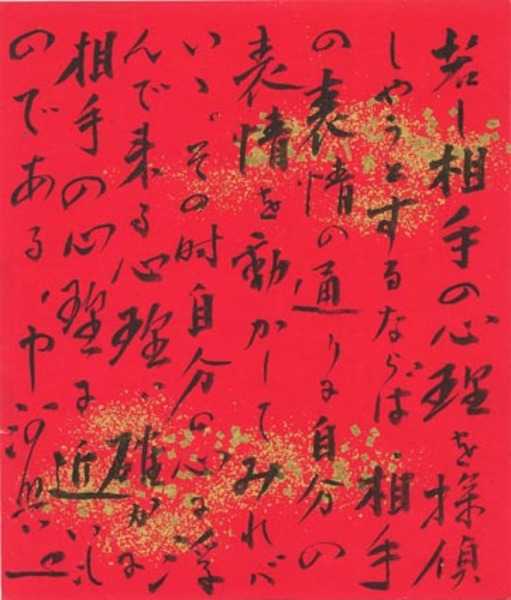 若し相手の心理を探偵
しやうとするならば、相手
の表情の通りに自分の
表情を動かしてみれば
いゝ。その時自分の心に浮
んで来る心理 確かに
相手の心理に近いも
のである、中河與一